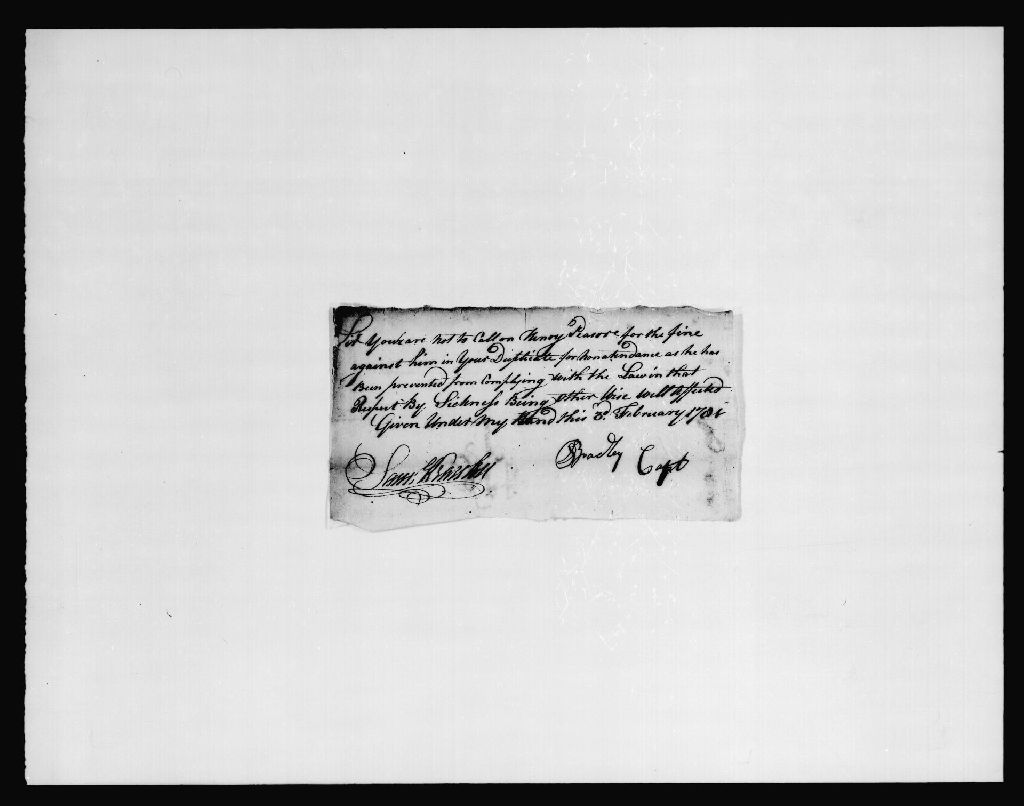 Sir You are not to Call on Henry Peasore for the fine
against him in Your Duplicate for Nonatendance as he has
Been prevented from Complying with the Law in that
Respect By Sickness Being other Wise Well Affected
Given Under My Hand this 3d February 1781
Bradley Capt
Saml